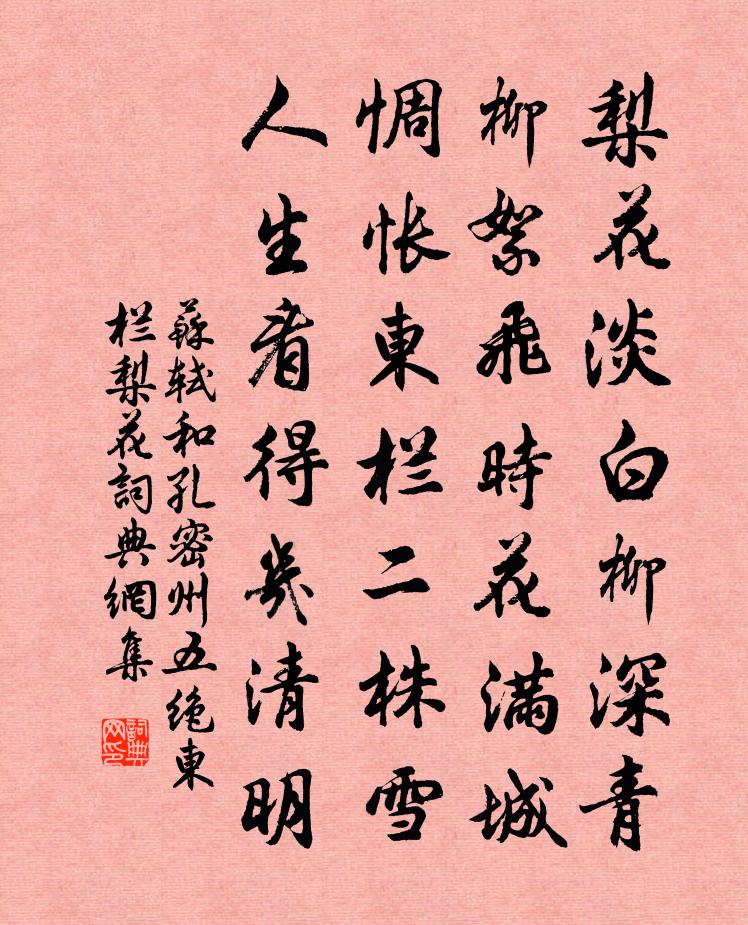 梨花淡白柳深青
柳絮飛時花滿城
惆怅東栏二株雪
人生看得幾清明
蘇轼和孔密州五绝東
栏梨花詞典網集
詞典
网印